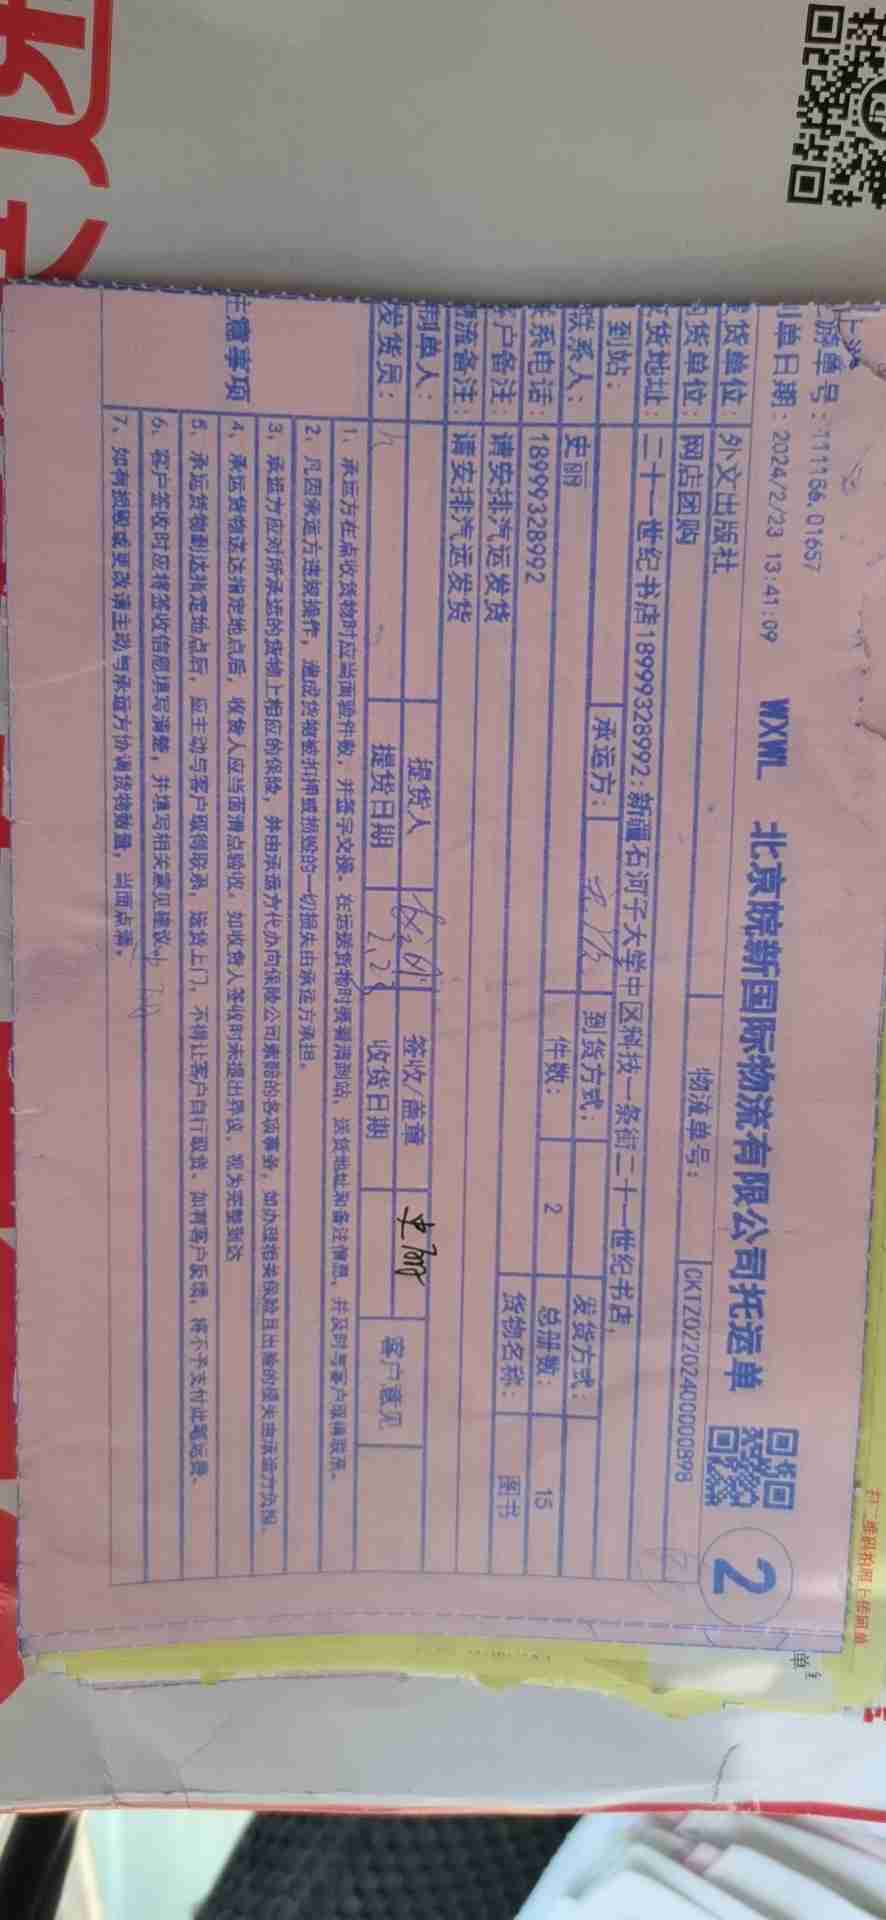 游单号：111156.01657
单日期：2024/2/23 13:41:09
WXWL 北京皖新国际物流有限公司托运单
2
货单位：外文出版社
货单位：网店团购
物流单号：
CKTZ022024000000898
货地址：二十一世纪书店18999328992:新疆石河子大学中区科技一条街二十一世纪书店,
到站：
承运方：
到货方式：
发货方式：
联系人：史丽
件数：2
总册数：15
系电话：18999328992
货物名称：图书
户备注：请安排汽运发货
流备注：请安排汽运发货
制单人：
提货人
签收/盖章
史丽
客户意见
发货员：
提货日期 2.23
收货日期
注意事项
1、承运方在点收货物时应当面验件数，并签字交接。在运拨货物时须看清到站，送货地址和备注信息，并及时与客户取得联系。
2、凡因承运方违规操作，造成货物被扣押或损毁的一切损失由承运方承担。
3、承运方应对所承运的货物上相应的保险，并由承运方代办向保险公司索赔的各项事务，如办理相关保险且出险的损失由承运方负担。
4、承运货物送达指定地点后，收货人应当面清点验收。如收货人签收时未提出异议，视为完整到达
5、承运货物到达指定地点后，应主动与客户取得联系，送货上门，不得让客户自行取货，如有客户反馈，将不予支付此笔运费。
6、客户签收时应将签收信息填写清楚，并填写相关意见建议。
7、如有损毁或更改请主动与承运方协调货物数量，当面点清。
扫二维码拍照上传回单
单